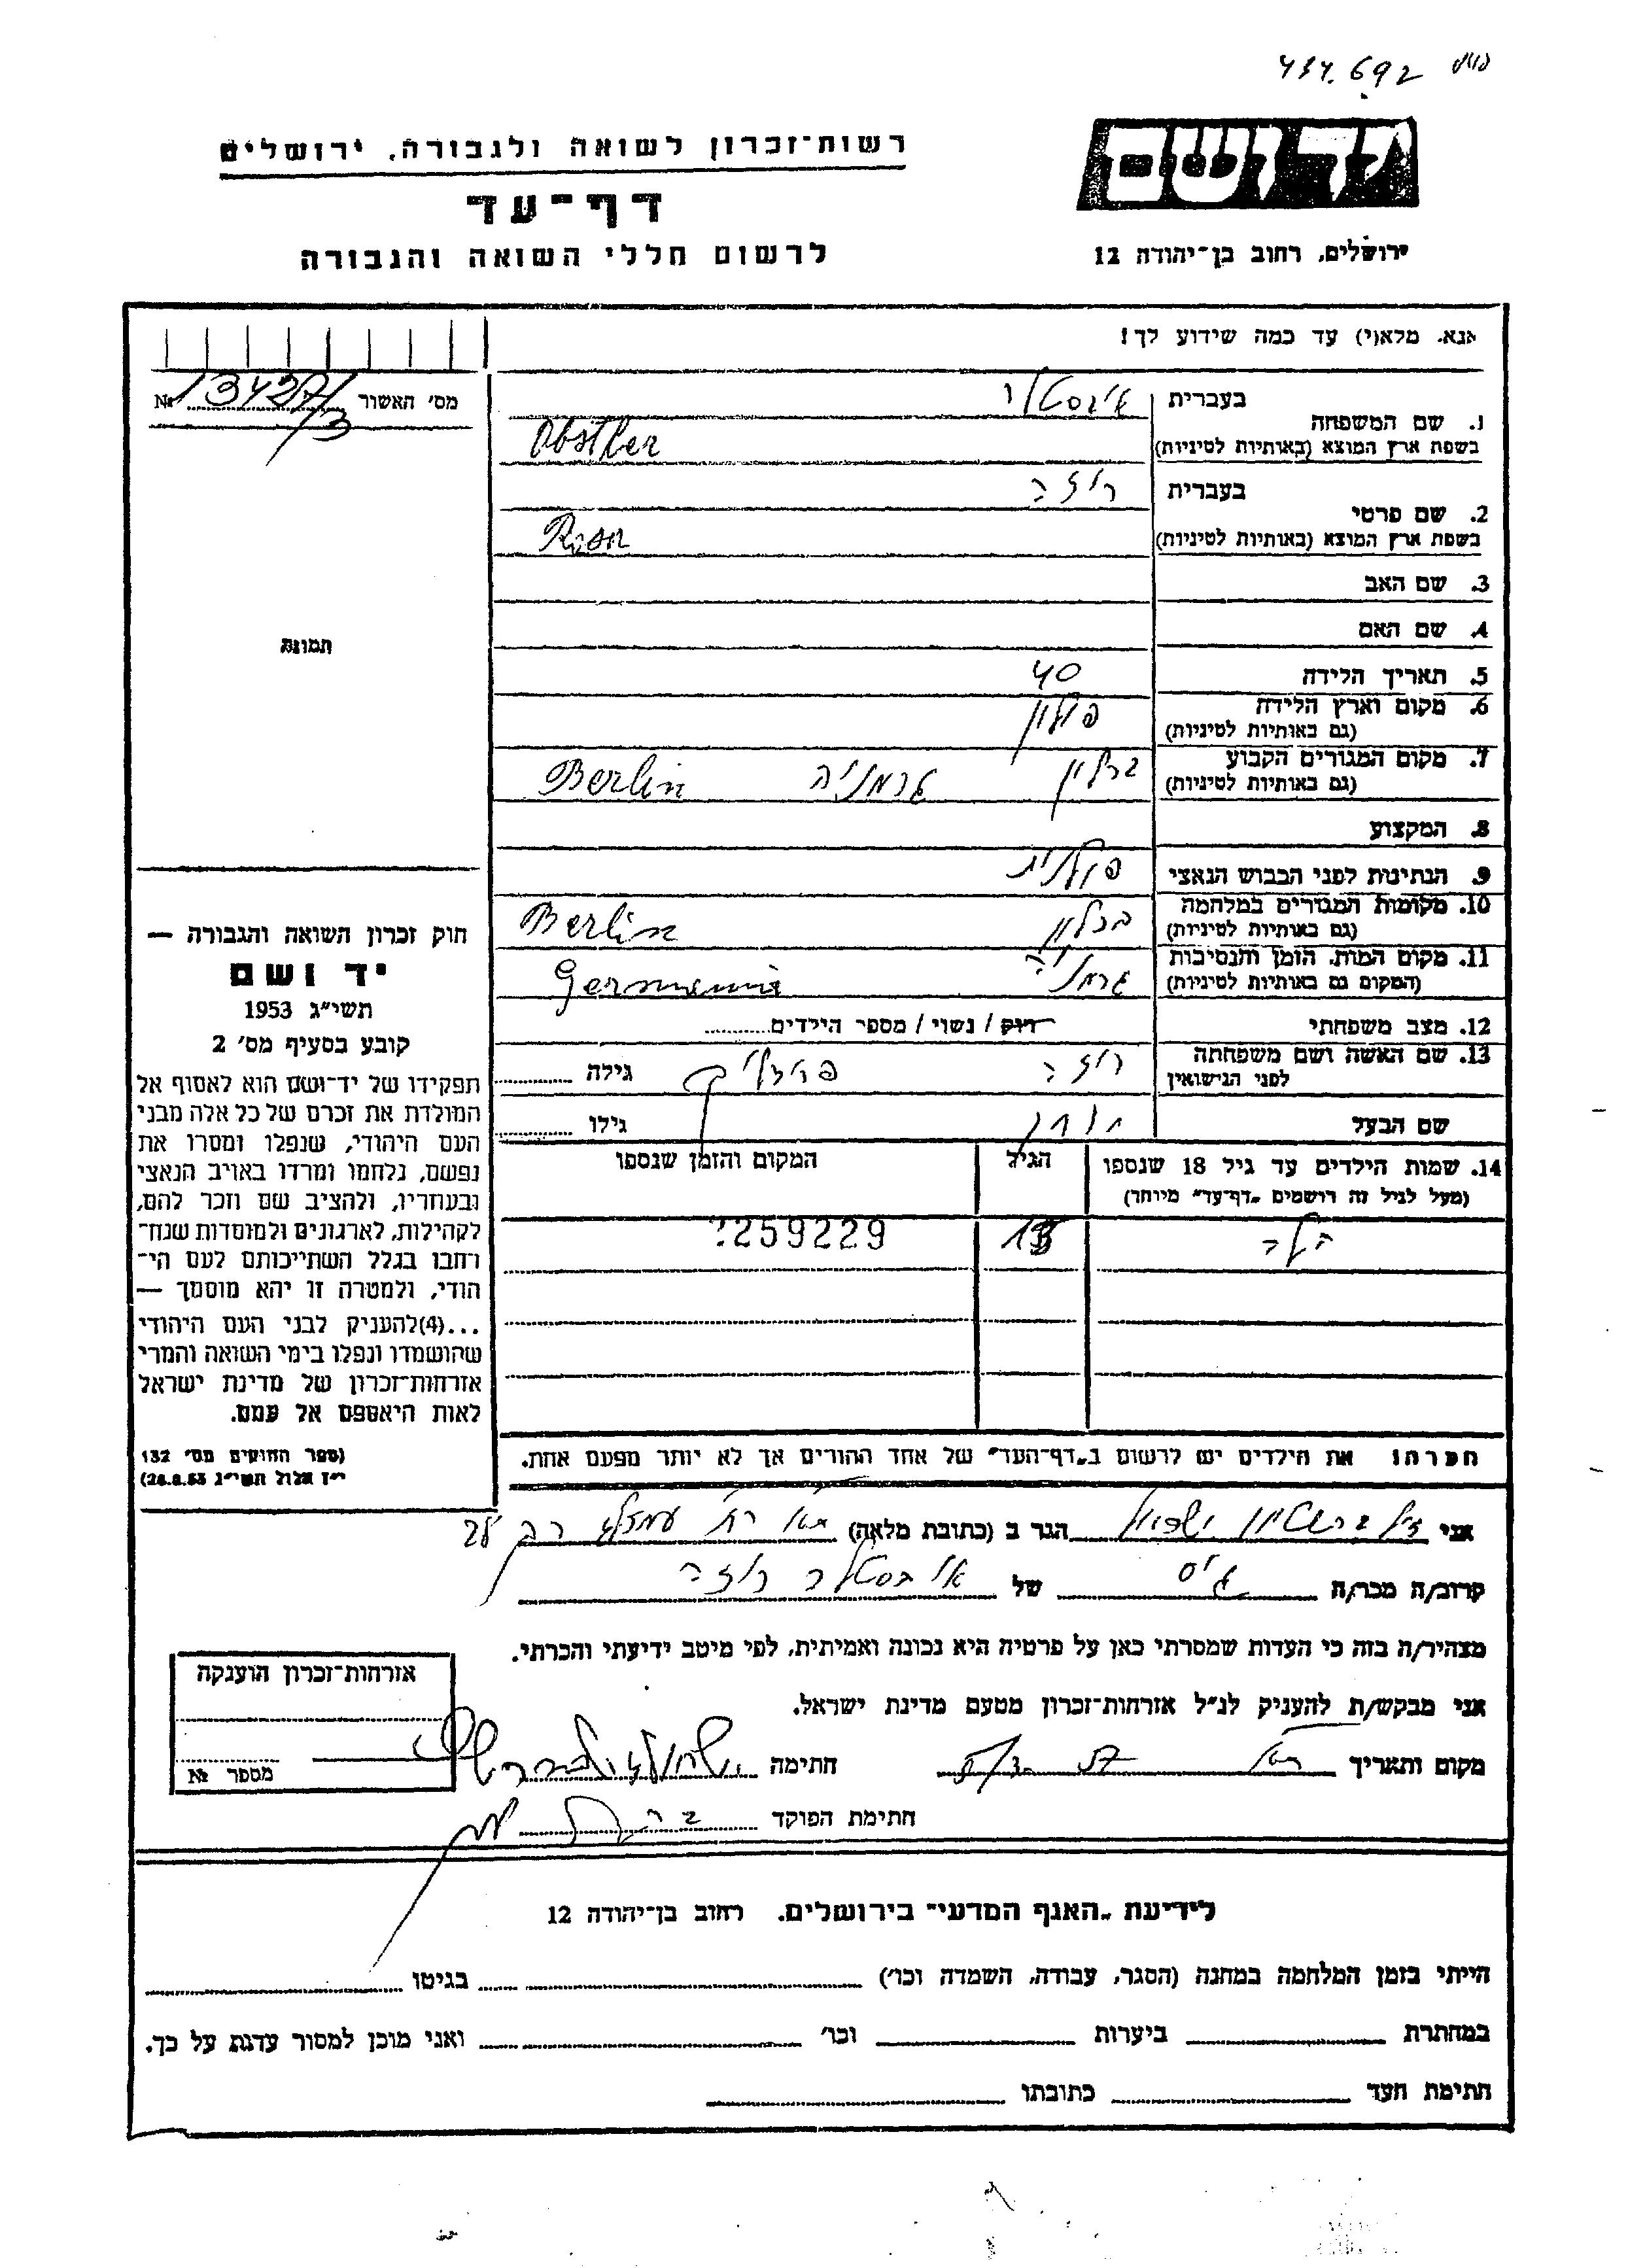 434.692
רשות־זכרון לשואה ולגבורה, ירושלים
דף־עד
לרשום חללי השואה והגבורה
יד ושם
ירושלים, רחוב בן־יהודה 12
אנא, מלא(י) עד כמה שידוע לך!
מס' האשור № 13427/3
1. שם המשפחה בעברית אובסטלר
בשפת ארץ המוצא (באותיות לטיניות) Obstler
2. שם פרטי בעברית רוזה
בשפת ארץ המוצא (באותיות לטיניות) Rosa
3. שם האב
4. שם האם
תמונה
5. תאריך הלידה 40
6. מקום וארץ הלידה פולין
(גם באותיות לטיניות)
7. מקום המגורים הקבוע ברלין גרמניה Berlin
(גם באותיות לטיניות)
8. המקצוע
9. הנתינות לפני הכבוש הנאצי פולנית
10. מקומות המגורים במלחמה ברלין Berlin
(גם באותיות לטיניות)
11. מקום המות, הזמן והנסיבות גרמניה Germania
(המקום גם באותיות לטיניות)
12. מצב משפחתי רווק / נשוי / מספר הילדים
13. שם האשה ושם משפחתה רוזה גילה
לפני הנישואין
שם הבעל גילו
14. שמות הילדים עד גיל 18 שנספו הגיל המקום והזמן שנספו
(מעל לגיל זה רושמים „דף־עד" מיוחד)
259229
חוק זכרון השואה והגבורה —
יד ושם
תשי"ג 1953
קובע בסעיף מס' 2
תפקידו של יד־ושם הוא לאסוף אל
המולדת את זכרם של כל אלה מבני
העם היהודי, שנפלו ומסרו את
נפשם, נלחמו ומרדו באויב הנאצי
ובעוזריו, ולהציב שם וזכר להם,
לקהילות, לארגונים ולמוסדות שנח־
רחבו בגלל השתייכותם לעם הי־
הודי, ולמטרה זו יהא מוסמך —
...(4)להעניק לבני העם היהודי
שהושמדו ונפלו בימי השואה והמרי
אזרחות־זכרון של מדינת ישראל
לאות היאספם אל עמם.
(ספר החוקים מס' 132
י"ז אלול תשי"ג 28.8.53)
הערה: את הילדים יש לרשום ב„דף־העד" של אחד ההורים אך לא יותר מפעם אחת.
אני זילברשטיין הגר ב (כתובת מלאה)
קרוב/ה מכר/ה גיס של אובסטלר רוזה
מצהיר/ה בזה כי העדות שמסרתי כאן על פרטיה היא נכונה ואמיתית, לפי מיטב ידיעתי והכרתי.
אני מבקש/ת להעניק לנ"ל אזרחות־זכרון מטעם מדינת ישראל.
מקום ותאריך חתימה
חתימת הפוקד
אזרחות־זכרון הוענקה
מספר №
לידיעת „האגף המדעי" בירושלים, רחוב בן־יהודה 12
הייתי בזמן המלחמה במחנה (הסגר, עבודה, השמדה וכו') בגיטו
במחתרת ביערות וכו' ואני מוכן למסור עדות על כך.
חתימת העד כתובתו